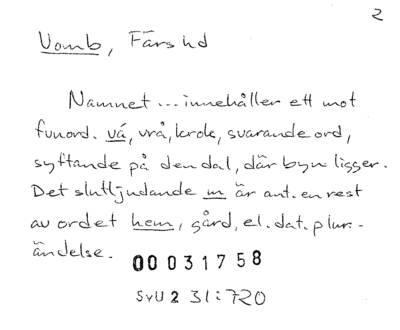 2
Vomb, Färs hd
Namnet ... innehåller ett mot
fvnord. vá, vrå, krok, svarande ord,
syftande på den dal, där byn ligger.
Det slutljudande m är ant. en rest
av ordet hem, gård, el. dat. plur.-
ändelse.
00 031758
SvU 2 31:720